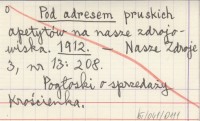 Pod adresem pruskich
apetytów na nasze zdrojo-
wiska. 1912. — Nasze Zdroje
3, nr 13: 208.
Pogłoski o sprzedaży
Krościenka.